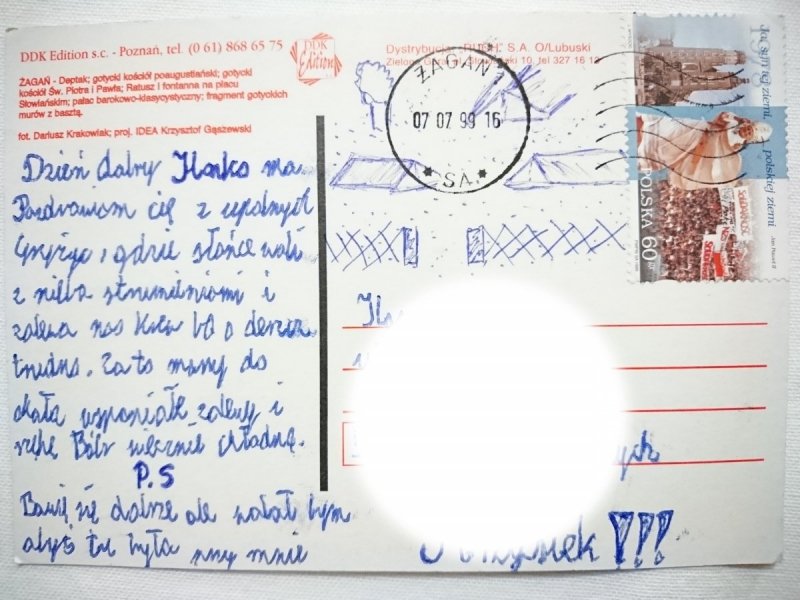 DDK Edition s.c. - Poznań, tel. (0 61) 868 65 75
DDK
Edition
Dystrybucja: RUCH S.A. O/Lubuski
Zielona Góra, ul. Słowackiego 10, tel 327 16 13
ŻAGAŃ - Deptak; gotycki kościół poaugustiański; gotycki
kościół Św. Piotra i Pawła; Ratusz i fontanna na placu
Słowiańskim; pałac barokowo-klasycystyczny; fragment gotyckich
murów z basztą.
fot. Dariusz Krakowiak; proj. IDEA Krzysztof Gąszewski
ŻAGAŃ 1
07 07 99 16
* SA *
polskiej ziemi
POLSKA 60 gr
Jan Paweł II
Dzień dobry
Pozdrawiam cię z upalnych
gdzie słońce wali
z nieba strumieniami i
zalewa nas
trudno. Za to mamy do
koła wspaniałe zalewy i
rzekę Bóbr wiecznie chłodną.
P.S
Bawię się dobrze ale wolał bym
abyś tu była przy mnie
!!!